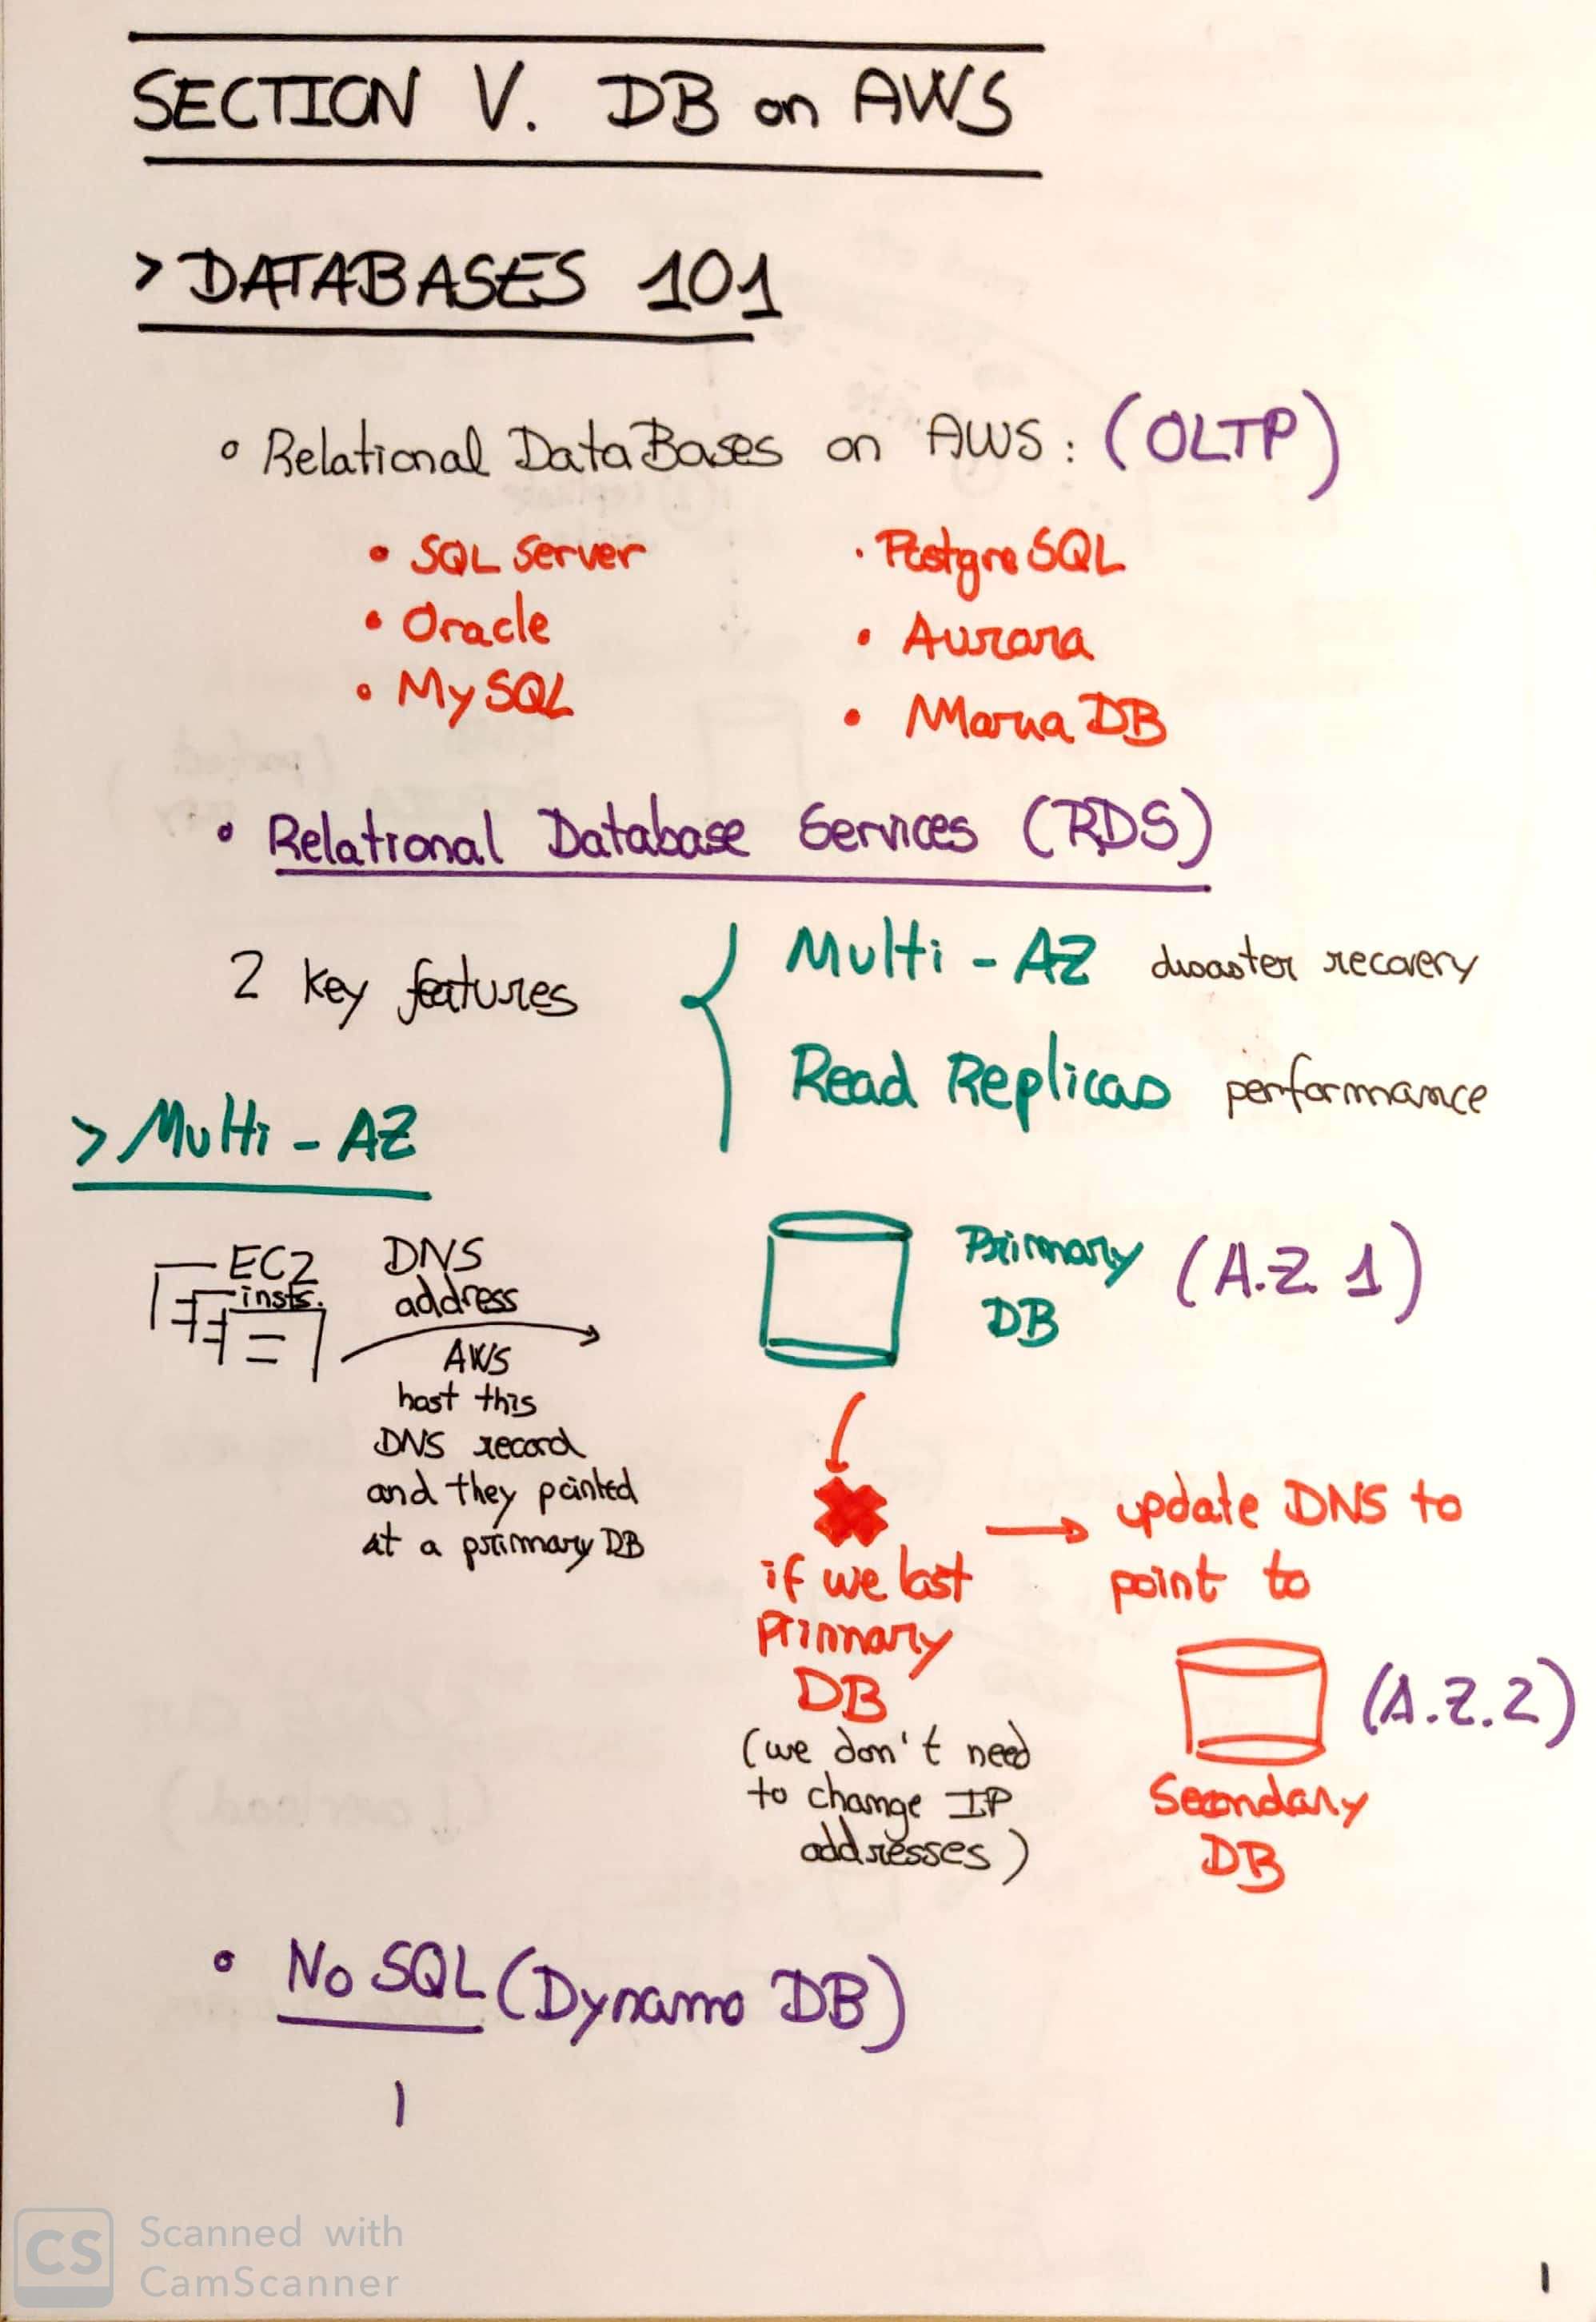 SECTION V. DB on AWS
> DATABASES 101
• Relational DataBases on AWS: (OLTP)
• SQL Server
• Oracle
• MySQL
• PostgreSQL
• Aurora
• Maria DB
• Relational Database Services (RDS)
2 key features
Multi-AZ disaster recovery
Read Replicas performance
> Multi-AZ
EC2
insts.
DNS
address
AWS
host this
DNS record
and they pointed
at a primary DB
Primary
DB
(A.Z. 1)
if we lost
Primary
DB
(we don't need
to change IP
addresses)
update DNS to
point to
(A.Z.2)
Secondary
DB
• No SQL (Dynamo DB)
CS
Scanned with
CamScanner
1